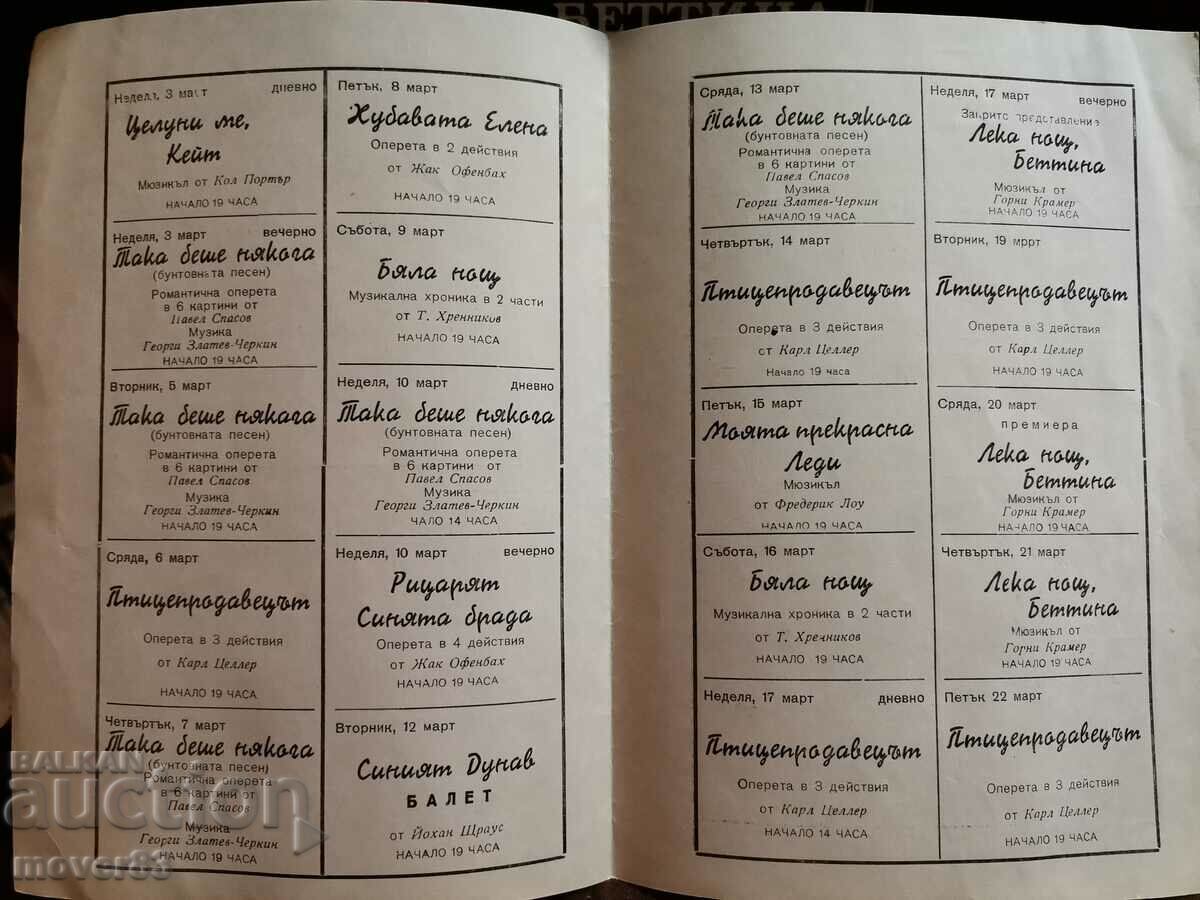 БЕТТИНА
Неделя, 3 март дневно
Целуни ме,
Кейт
Мюзикъл от Кол Портър
НАЧАЛО 19 ЧАСА
Неделя, 3 март вечерно
Така беше някога
(бунтовната песен)
Романтична оперета
в 6 картини от
Павел Спасов
Музика
Георги Златев-Черкин
НАЧАЛО 19 ЧАСА
Вторник, 5 март
Така беше някага
(бунтовната песен)
Романтична оперета
в 6 картини от
Павел Спасов
Музика
Георги Златев-Черкин
НАЧАЛО 19 ЧАСА
Сряда, 6 март
Птицепродавецът
Оперета в 3 действия
от Карл Целлер
НАЧАЛО 19 ЧАСА
Четвъртък, 7 март
Така беше някога
(бунтовната песен)
Романтична оперета
в 6 картини от
Павел Спасов
Музика
Георги Златев-Черкин
НАЧАЛО 19 ЧАСА
Петък, 8 март
Хубавата Елена
Оперета в 2 действия
от Жак Офенбах
НАЧАЛО 19 ЧАСА
Събота, 9 март
Бяла нощ
Музикална хроника в 2 части
от Т. Хренников
НАЧАЛО 19 ЧАСА
Неделя, 10 март дневно
Така беше някога
(бунтовната песен)
Романтична оперета
в 6 картини от
Павел Спасов
Музика
Георги Златев-Черкин
ЧАЛО 14 ЧАСА
Неделя, 10 март вечерно
Рицарят
Синята брада
Оперета в 4 действия
от Жак Офенбах
НАЧАЛО 19 ЧАСА
Вторник, 12 март
Синият Дунав
БАЛЕТ
от Йохан Щраус
НАЧАЛО 19 ЧАСА
Сряда, 13 март
Така беше някога
(бунтовната песен)
Романтична оперета
в 6 картини от
Павел Спасов
Музика
Георги Златев-Черкин
НАЧАЛО 19 ЧАСА
Четвъртък, 14 март
Птицепродавецът
Оперета в 3 действия
от Карл Целлер
Начало 19 часа
Петък, 15 март
Моята прекрасна
Леди
Мюзикъл
от Фредерик Лоу
НАЧАЛО 19 ЧАСА
Събота, 16 март
Бяла нощ
Музикална хроника в 2 части
от Т. Хренников
НАЧАЛО 19 ЧАСА
Неделя, 17 март дневно
Птицепродавецът
Оперета в 3 действия
от Карл Целлер
НАЧАЛО 14 ЧАСА
Неделя, 17 март вечерно
Закрито представление
Лека нощ,
Беттина
Мюзикъл от
Горни Крамер
НАЧАЛО 19 ЧАСА
Вторник, 19 мррт
Птицепродавецът
Оперета в 3 действия
от Карл Целлер
НАЧАЛО 19 ЧАСА
Сряда, 20 март
премиера
Лека нощ,
Беттина
Мюзикъл от
Горни Крамер
НАЧАЛО 19 ЧАСА
Четвъртък, 21 март
Лека нощ,
Беттина
Мюзикъл от
Горни Крамер
НАЧАЛО 19 ЧАСА
Петък 22 март
Птицепродавецът
Оперета в 3 действия
от Карл Целлер
НАЧАЛО 19 ЧАСА
BALKAN
auction
mover83